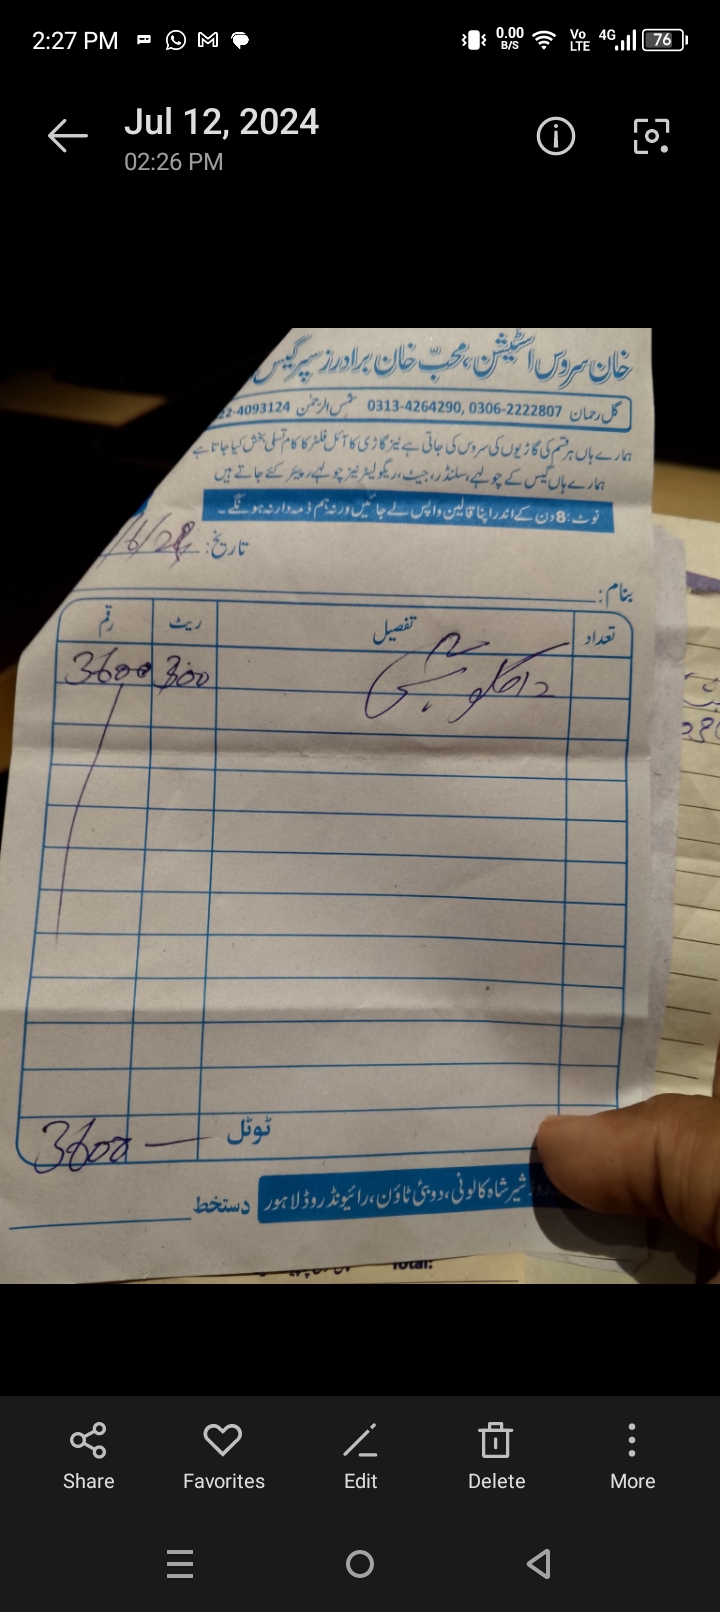 2:27 PM 0.00 B/S Vo LTE 4G 76
Jul 12, 2024
02:26 PM
خان سروس اسٹیشن، محبّ خان برادرز سپر گیس
گل رحمان 0306-2222807 ,0313-4264290 شمس الرحمٰن 4093124
ہمارے ہاں ہر قسم کی گاڑیوں کی سروس کی جاتی ہے نیز گاڑی کا آئل فلٹر کا کام تسلی بخش کیا جاتا ہے
ہمارے ہاں گیس کے چولہے، سلنڈر، جیٹ، ریگولیٹر نیز چولہے رپیئر کئے جاتے ہیں
نوٹ: 8 دن کے اندر اپنا قالین واپس لے جائیں ورنہ ہم ذمہ دار نہ ہونگے۔
تاریخ:
بنام:
تعداد تفصیل ریٹ رقم
300 3600
ٹوٹل 3600
شیر شاہ کالونی، دوبئی ٹاؤن، رائیونڈ روڈ لاہور دستخط
Total:
Share Favorites Edit Delete More